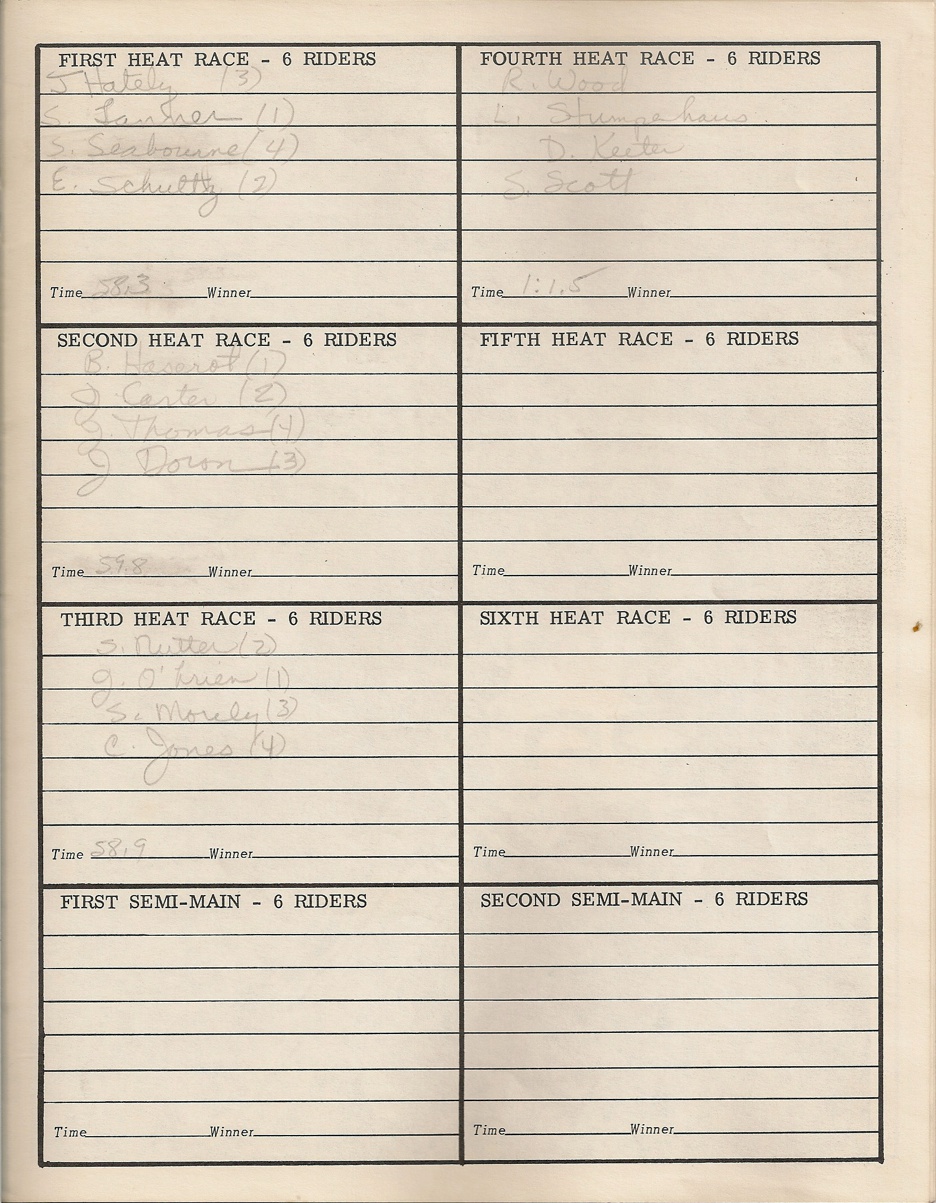 FIRST HEAT RACE - 6 RIDERS
J Hately (3)
S. Lanher (1)
S. Seabourne (4)
E. Schultz (2)
Time 58.3 Winner
SECOND HEAT RACE - 6 RIDERS
B. Haserot (1)
J Carter (2)
G. Thomas (4)
J Doron (3)
Time 59.8 Winner
THIRD HEAT RACE - 6 RIDERS
S. Nutter (2)
G. O'brien (1)
S. Morely (3)
C. Jones (4)
Time 58.9 Winner
FIRST SEMI-MAIN - 6 RIDERS
Time Winner
FOURTH HEAT RACE - 6 RIDERS
R. Wood
L. Stumpehaus.
D. Keeter
S. Scott
Time 1:1.5 Winner
FIFTH HEAT RACE - 6 RIDERS
Time Winner
SIXTH HEAT RACE - 6 RIDERS
Time Winner
SECOND SEMI-MAIN - 6 RIDERS
Time Winner